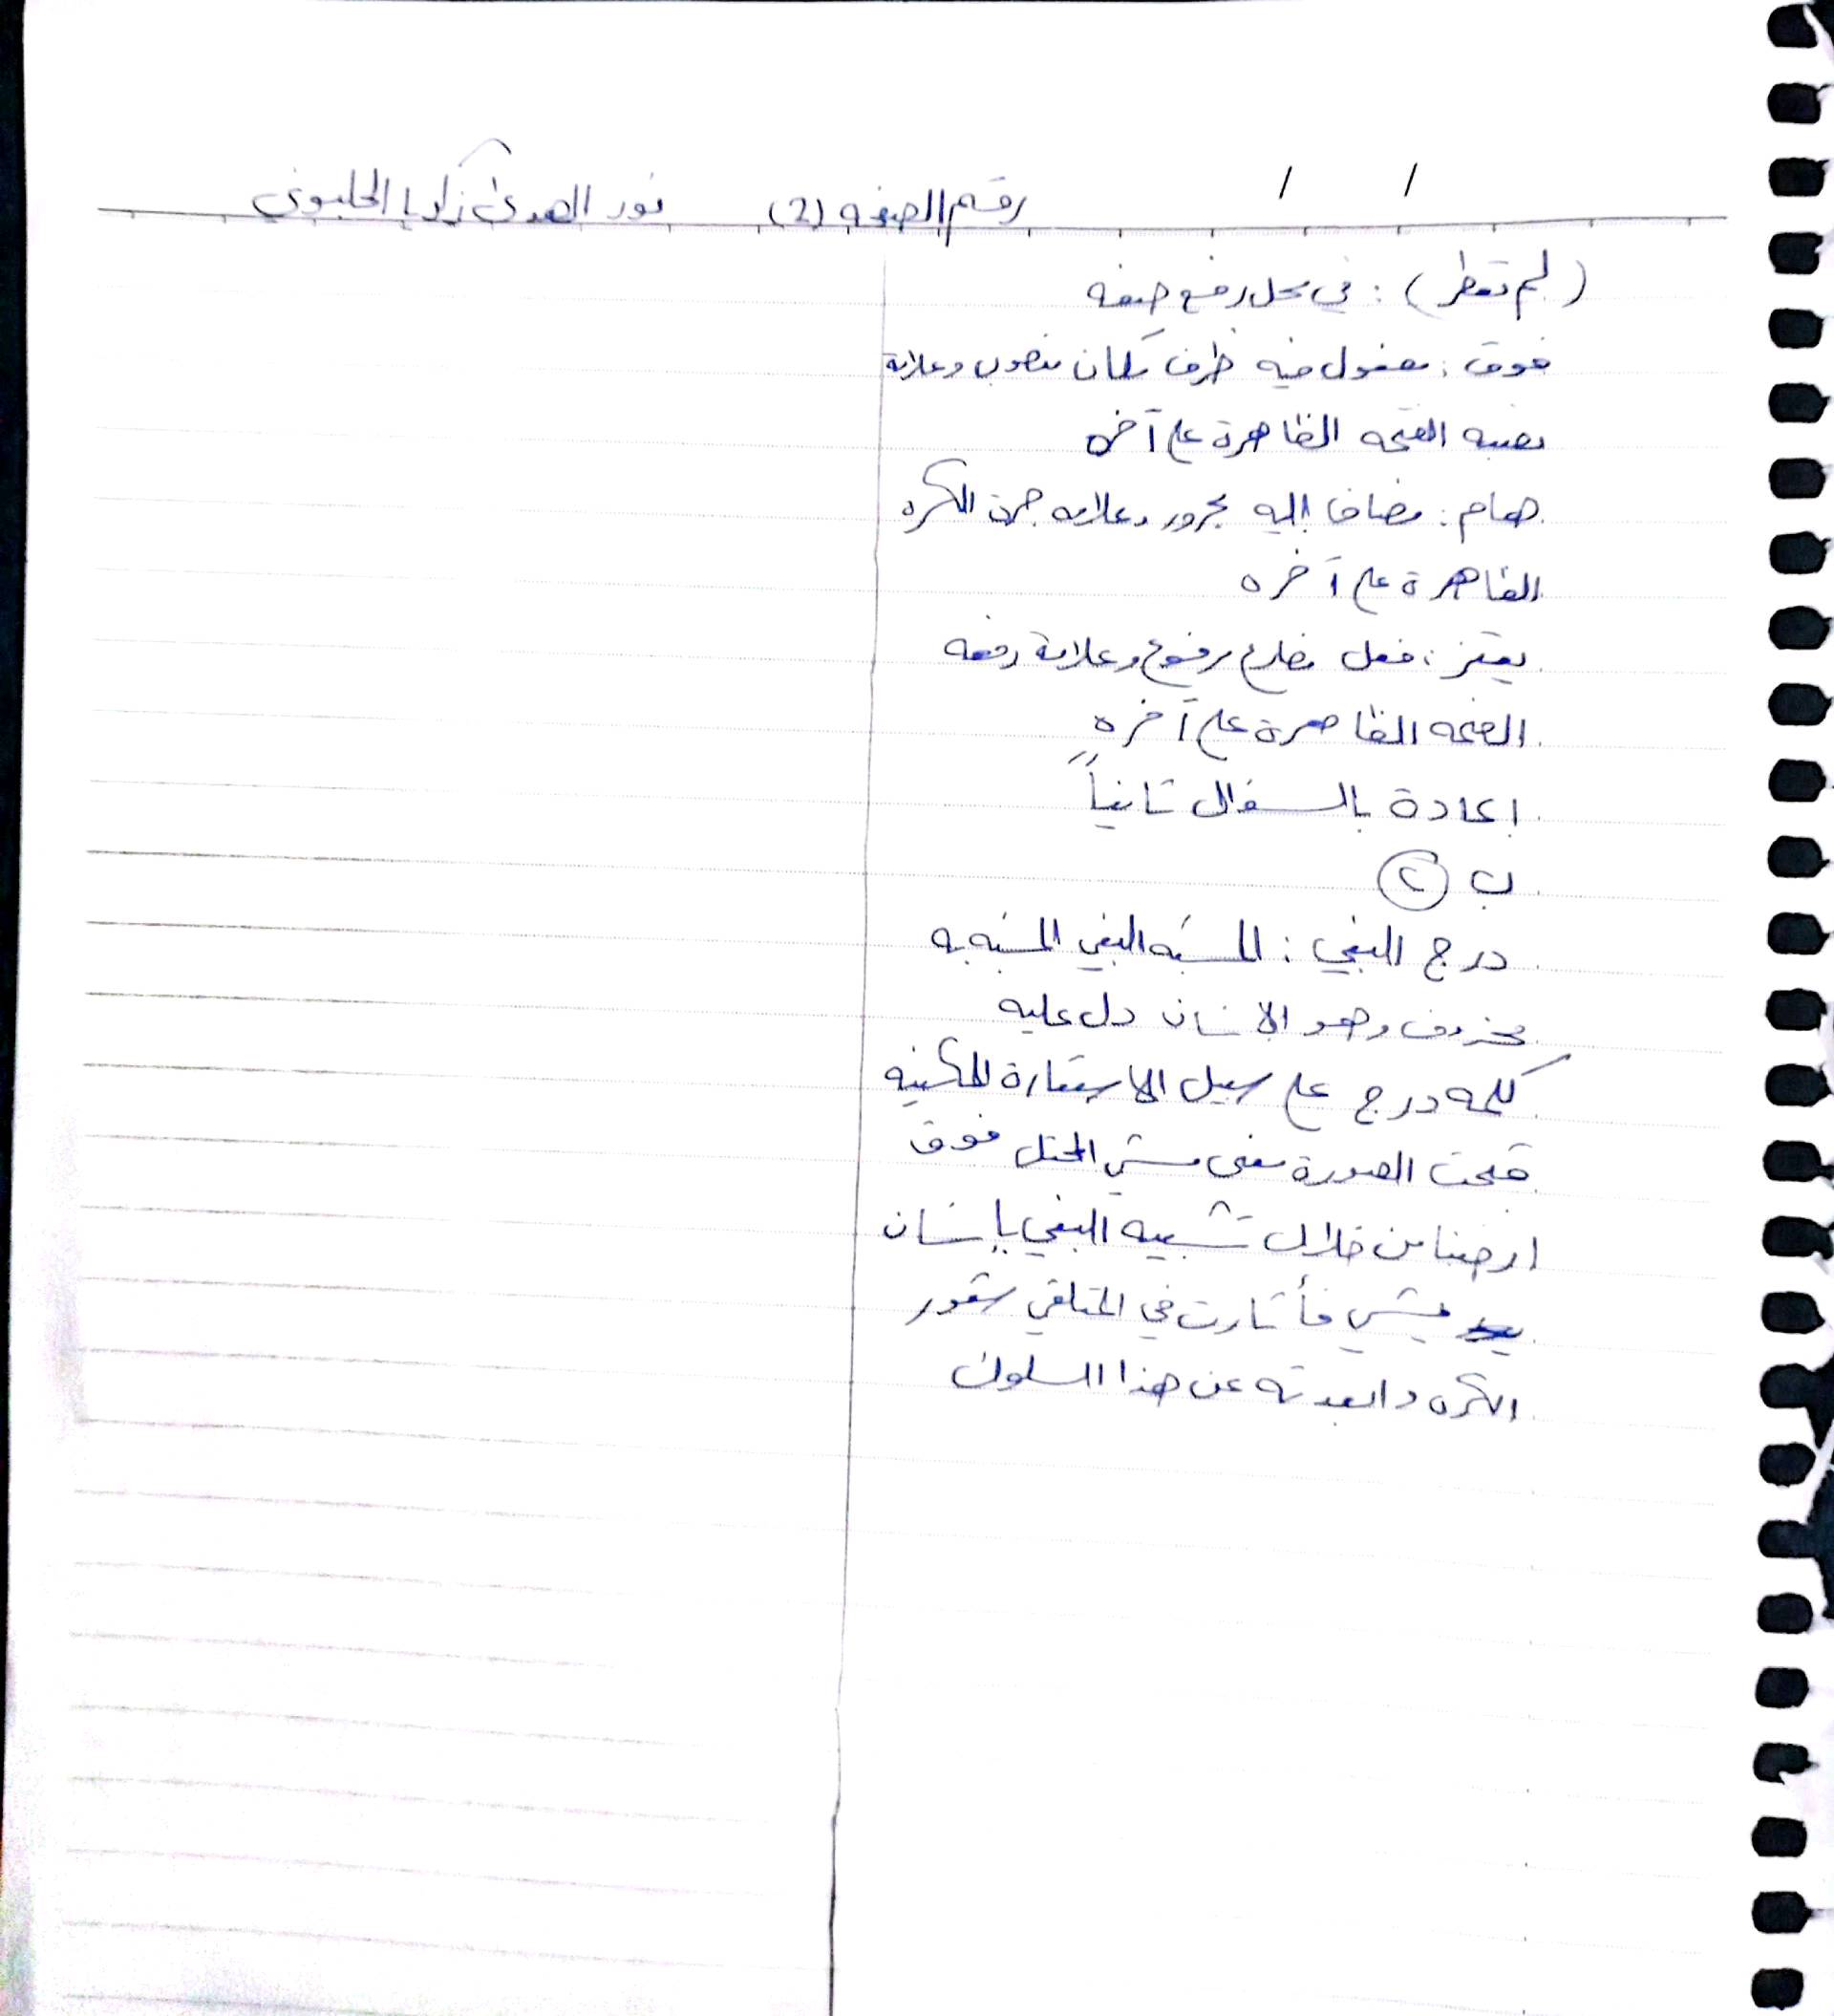 رقم الصفحه (2) نور الهدى زكريا الحلبوني
/ /
(لم تعطر) : في محل رفع صفه
فوق : مفعول فيه ظرف مكان منصوب وعلامة
نصبه الفتحه الظاهرة على آخره
هام : مضاف إليه مجرور وعلامه جره الكسره
الظاهرة على آخره
يعتز : فعل مضارع مرفوع وعلامة رفعه
الضمه الظاهرة على آخره
اعادة بالسؤال ثانياً
ب (2)
درج البغي : المشبه البغي المشبه به
محذوف وهو الإنسان دل عليه
كلمه درج على سبيل الاستعارة المكنيه
قبحت الصورة معنى مشي المحتل فوق
ارضنا من خلال تشبيه البغي بإنسان
يمشي فأثارت في المتلقي شعور
الكره وابعدته عن هذا السلوك